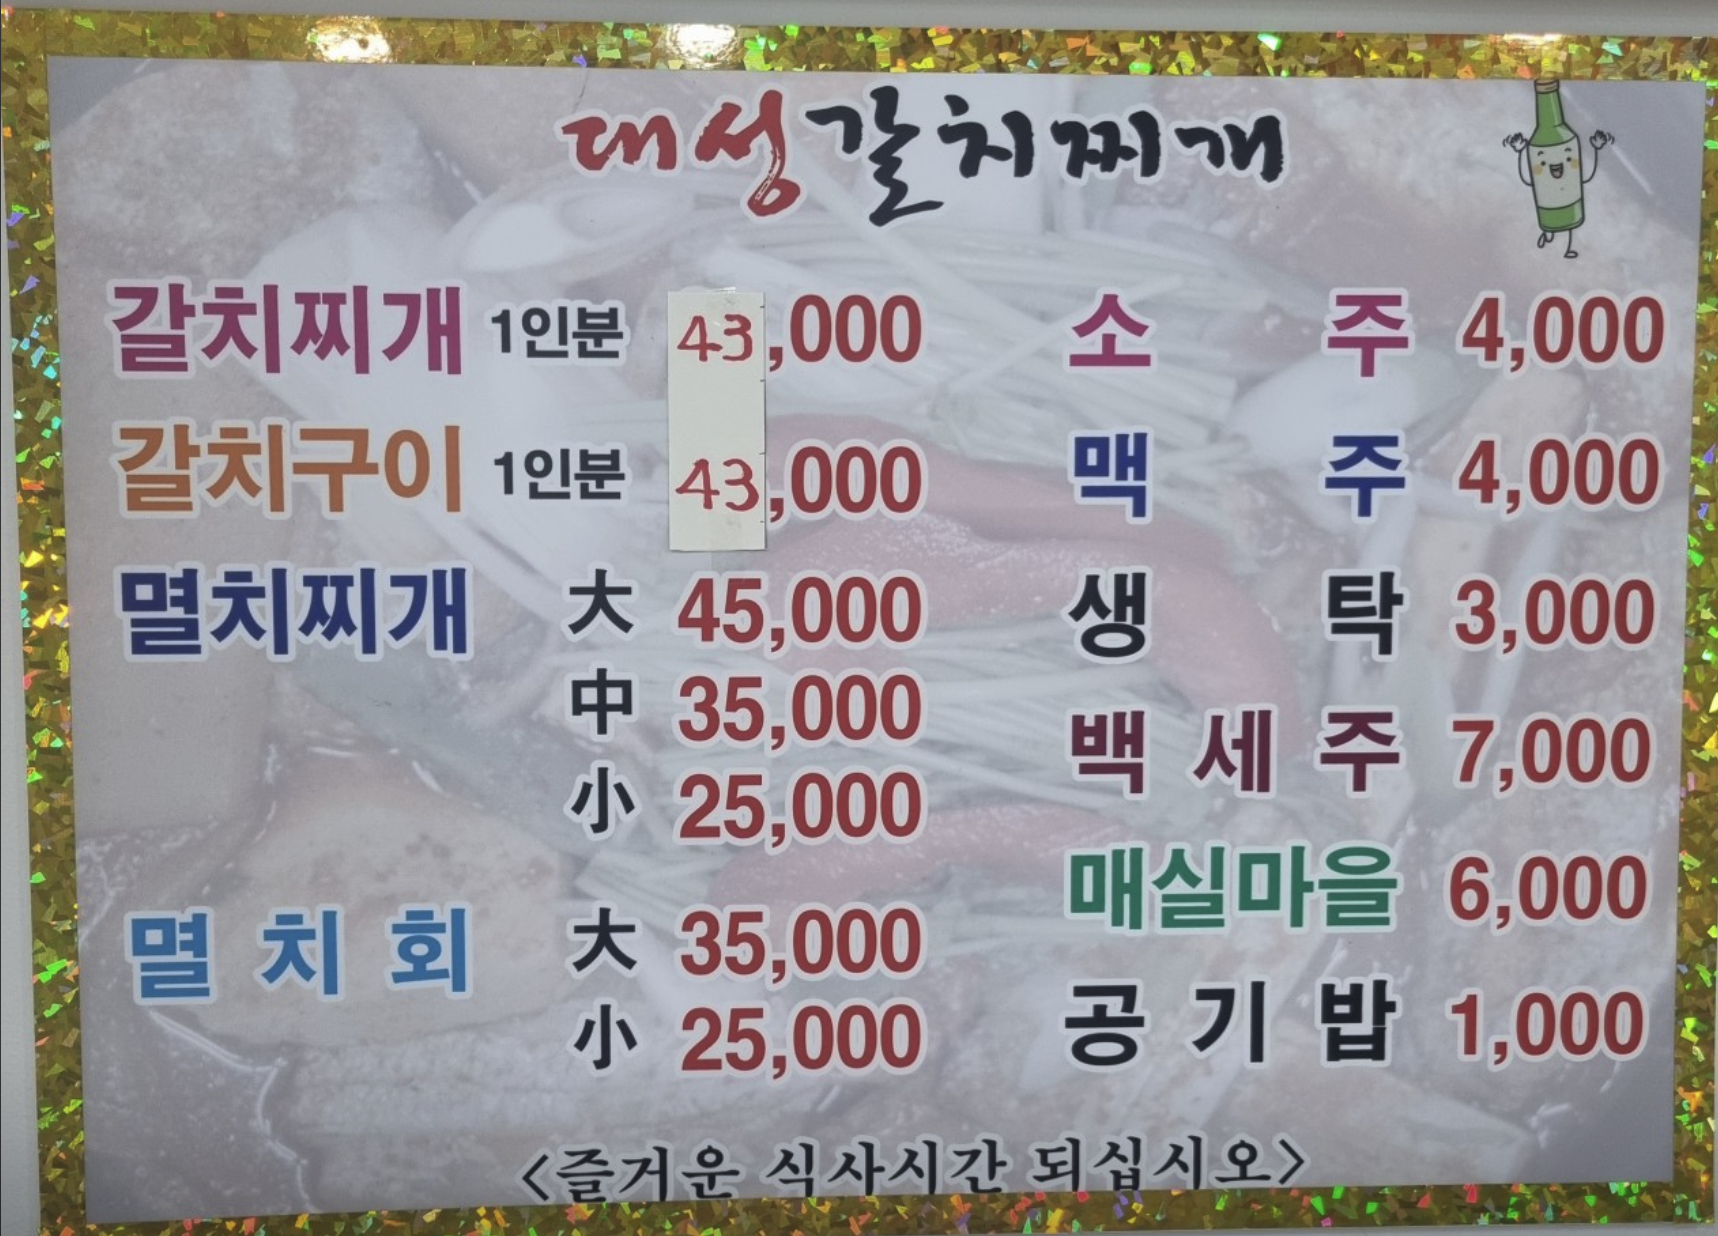 대성갈치찌개
갈치찌개 1인분 43,000
갈치구이 1인분 43,000
멸치찌개 大 45,000
中 35,000
小 25,000
멸치회 大 35,000
小 25,000
소주 4,000
맥주 4,000
생탁 3,000
백세주 7,000
매실마을 6,000
공기밥 1,000
<즐거운 식사시간 되십시오>